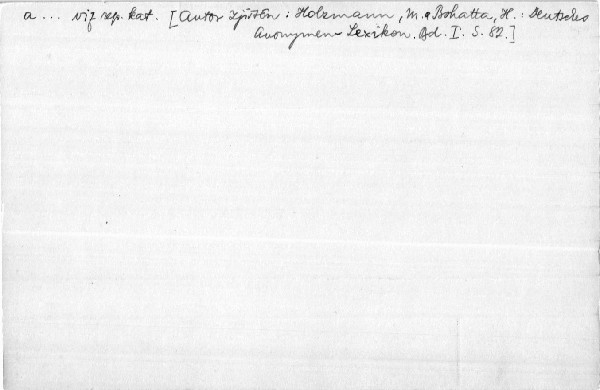 a... viz rep. kat. [Autor zjištěn: Holzmann, M. a Bohatta, H.: Deutsches
Anonymen-Lexikon. Bd. I. S. 82.]